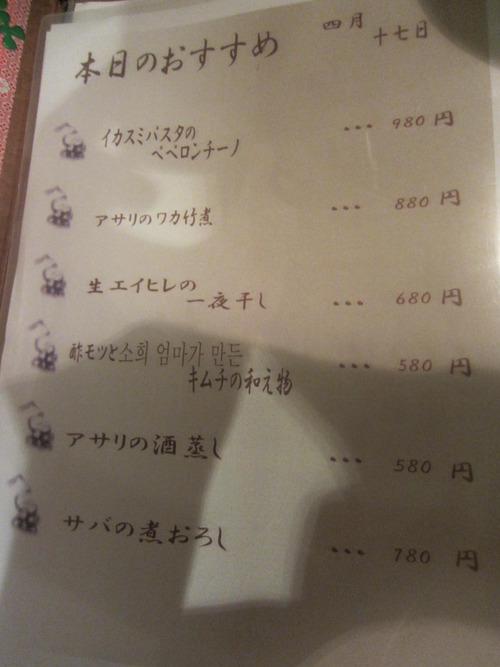 四月
十七日
本日のおすすめ
イカスミパスタの
ペペロンチーノ … 980 円
アサリのワカ竹煮 … 880 円
生エイヒレの
一夜干し … 680 円
酢モツと소희 엄마가 만든
キムチの和え物 … 580 円
アサリの酒蒸し … 580 円
サバの煮おろし … 780 円